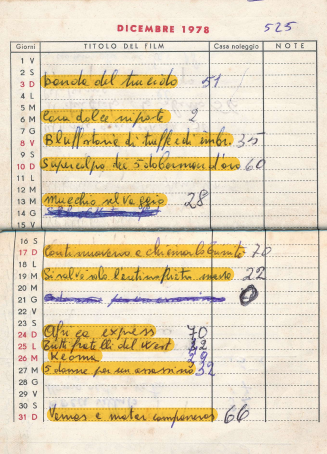 DICEMBRE 1978 525
Giorni TITOLO DEL FILM Casa noleggio NOTE
1 V
2 S
3 D banda del trucido 51
4 L
5 M
6 M Cara dolce nipote 2
7 G
8 V Bluff storia di truffe e di imbr. 35
9 S
10 D Supercolpo dei 5 dobermann d'oro 60
11 L
12 M
13 M Mucchio selvaggio 28
14 G
15 V
16 S
17 D Continuavano a chiamarlo 70
18 L
19 M Si salvi solo l'entroflitri 22
20 M
21 G 0
22 V
23 S
24 D Africa express 70
25 L Tutti fratelli del West 22
26 M Keoma 29
27 M 5 donne per un assassino 32
28 G
29 V
30 S
31 D Vamos a matar companeros 66